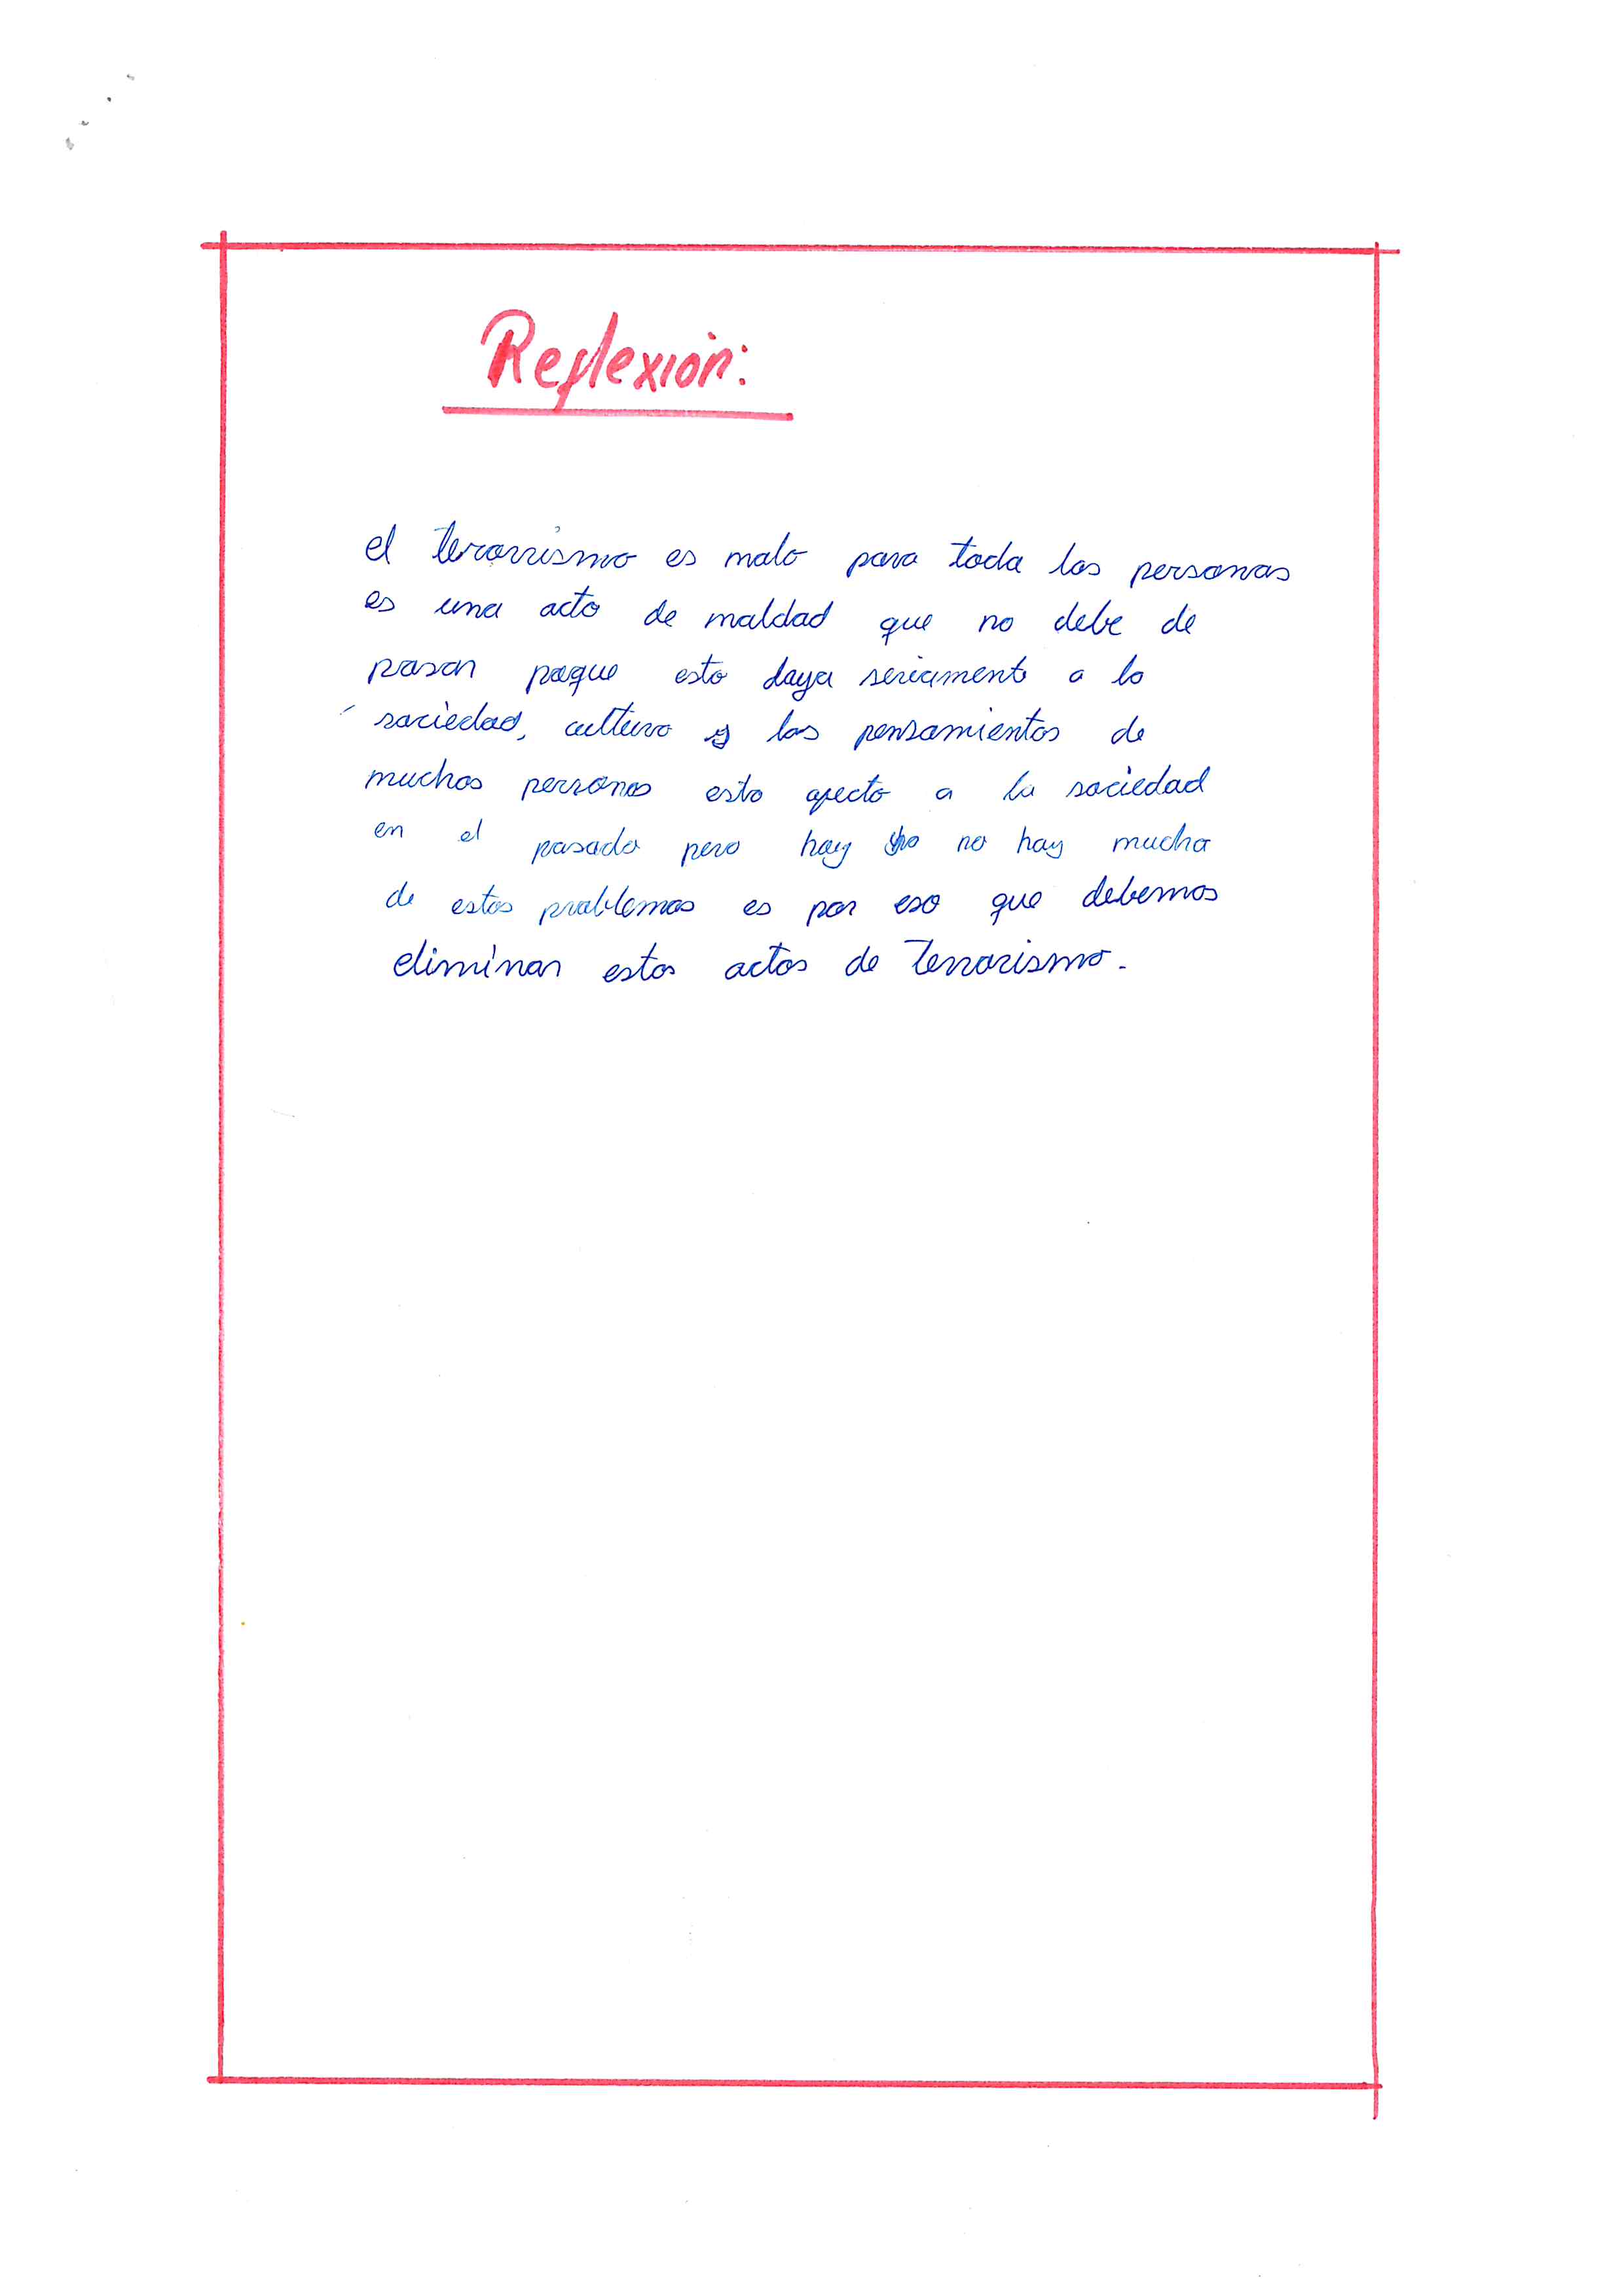 Reflexión:
el terorrismo es malo para toda las personas
es una acto de maldad que no debe de
pasar poque esto daya seriamente a la
sociedad, cultura y los pensamientos de
muchas personas esto afecto a la sociedad
en el pasado pero hoy no hay mucho
de estos problemas es por eso que debemos
eliminar estos actos de terrorismo.